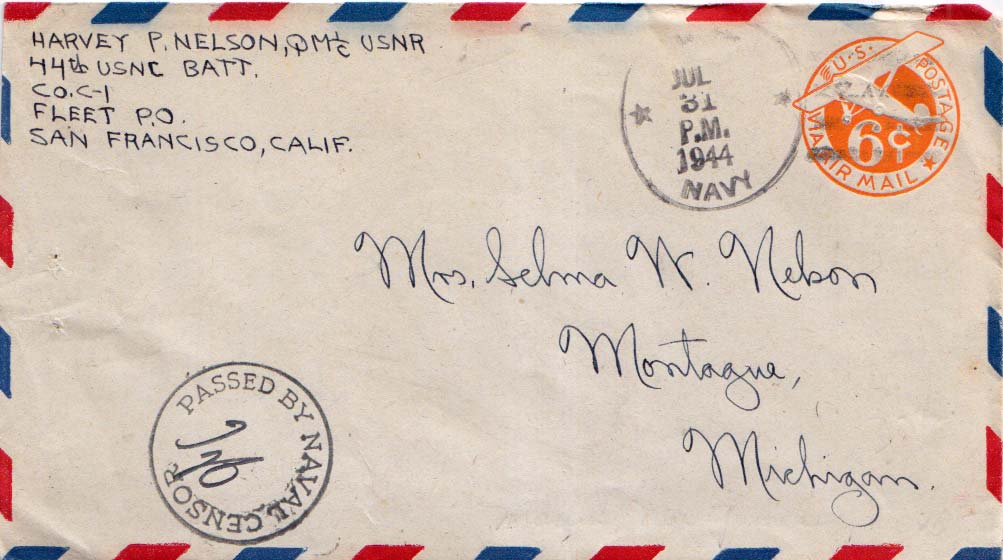 HARVEY P. NELSON, QM1/c USNR
44th USNC BATT.
CO. C-1
FLEET P.O.
SAN FRANCISCO, CALIF.
JUL
31
P.M.
1944
NAVY
U.S. POSTAGE
6¢
VIA AIR MAIL
Mrs. Selma W. Nelson
Montague,
Michigan.
PASSED BY NAVAL CENSOR